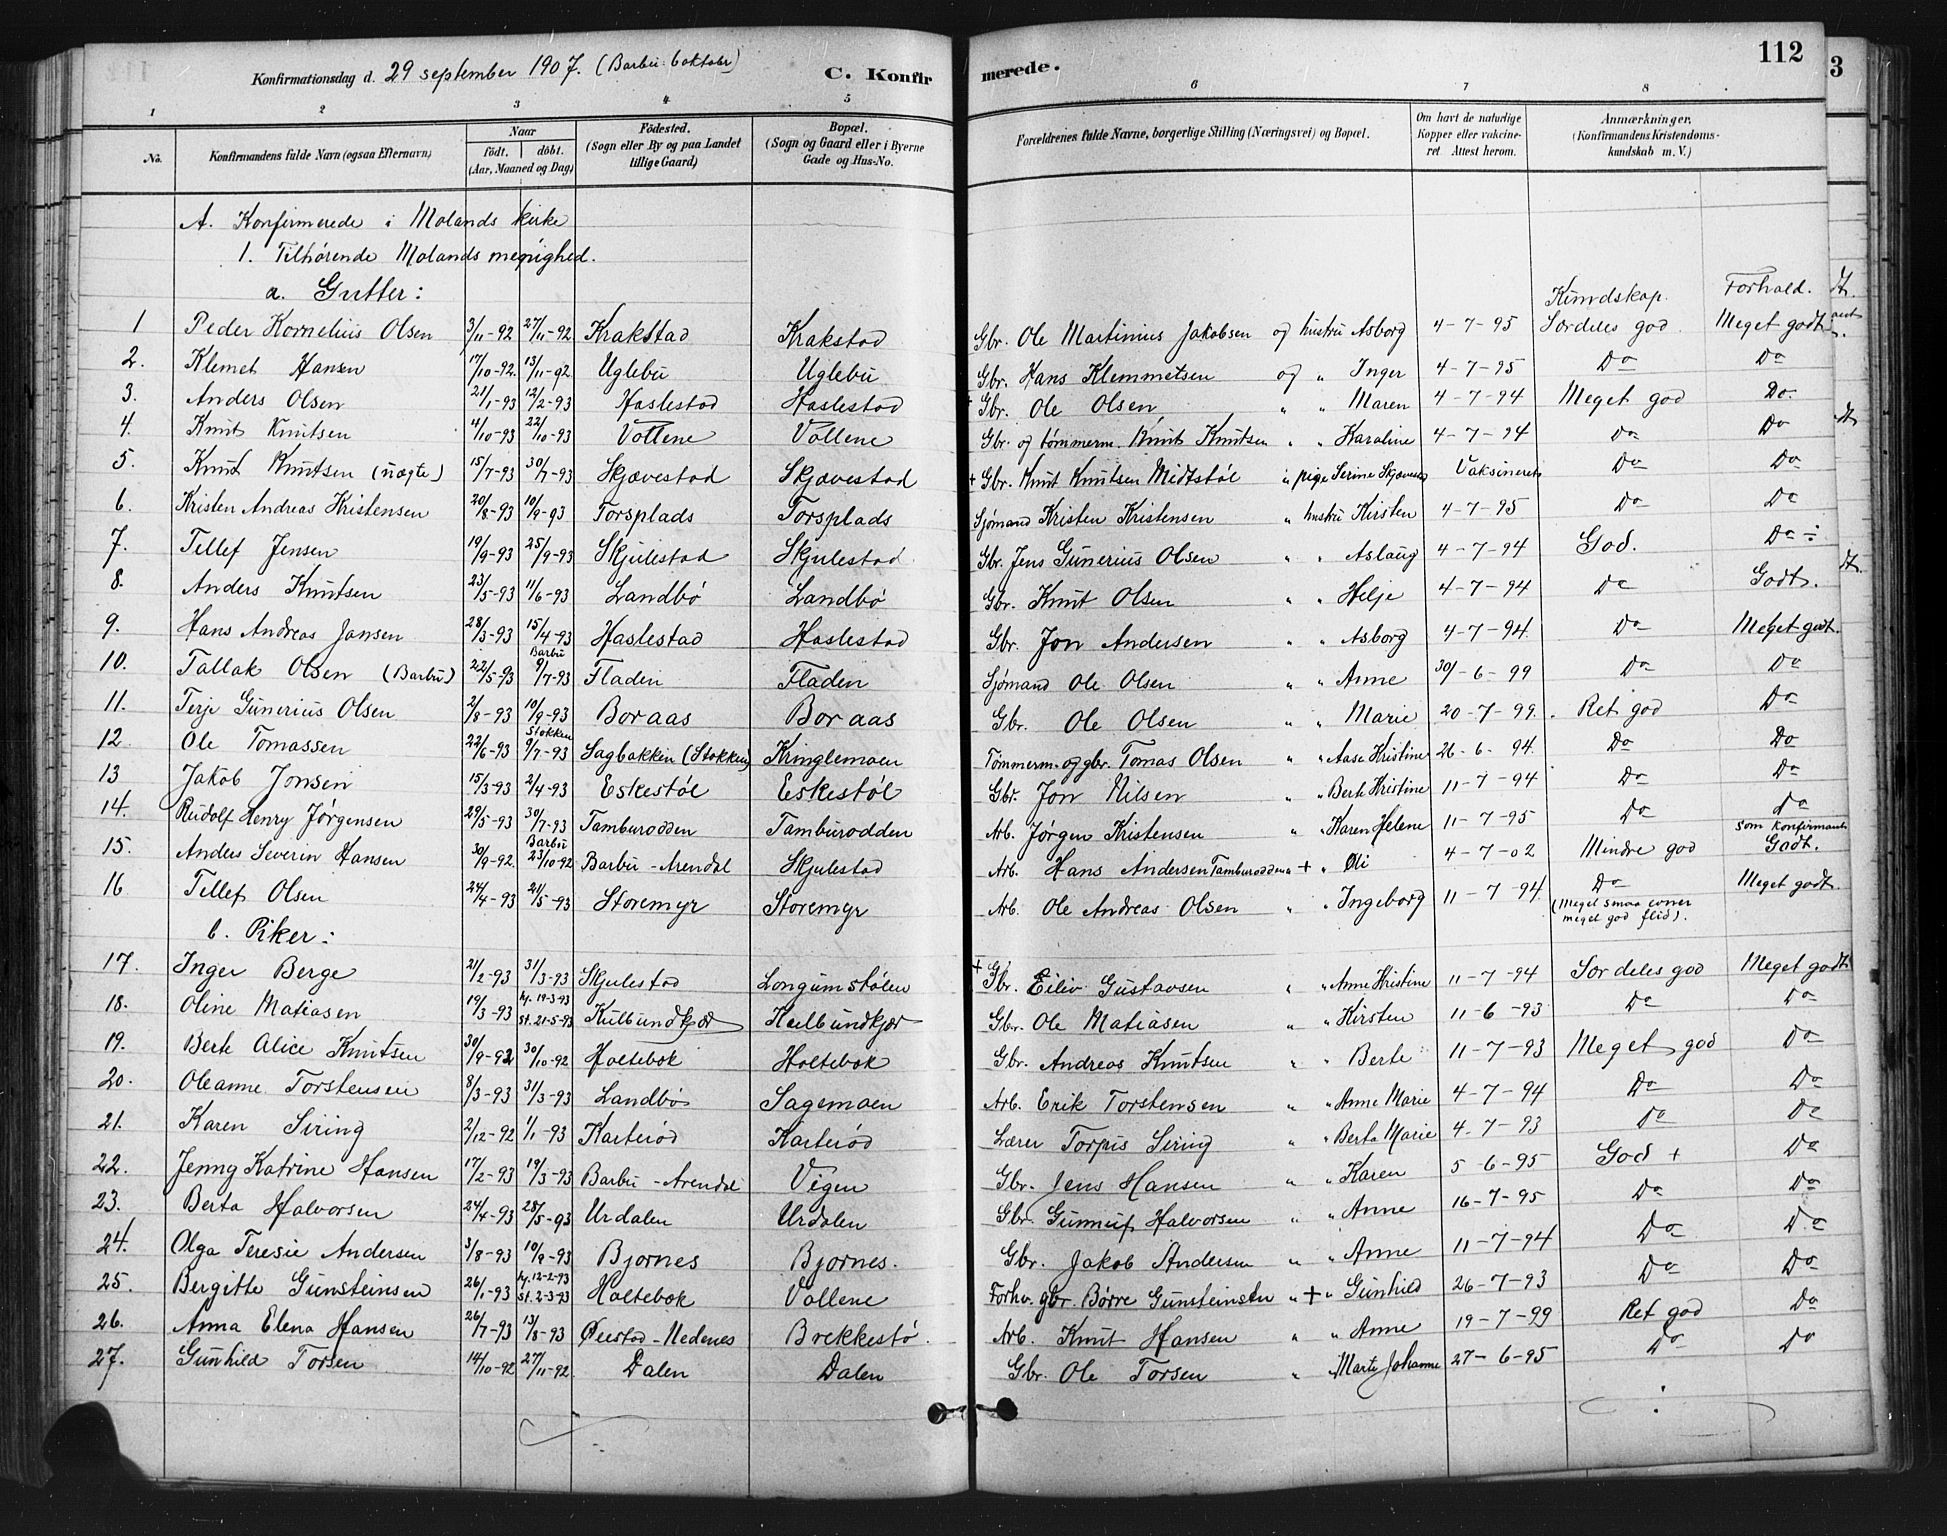 112
3
Konfirmationsdag d. 29 september 1907. (Barbu: 6 oktober)
C. Konfirmerede.
1 2 3 4 5 6 7 8
No.
Konfirmandens fulde Navn (ogsaa Efternavn)
Naar
født. døbt.
(Aar, Maaned og Dag)
Fødested.
(Sogn eller By og paa Landet tillige Gaard)
Bopæl.
(Sogn og Gaard eller i Byerne Gade og Hus-No.
Forældrenes fulde Navne, borgerlige Stilling (Næringsvei) og Bopæl.
Om havt de naturlige Kopper eller vakcineret Attest herom.
Anmærkninger.
(Konfirmandens Kristendomskundskab m. V.)
A. Konfirmerede i Molands kirke
1. Tilhørende Molands menighed.
a. Gutter:
Kundskap. Forhold.
1 Peder Kornelius Olsen 3/11-92 27/11-92 Krakstad Krakstad Gbr. Ole Martinius Jakobsen og hustru Asborg 4-7-95 Særdeles god Meget godt
2. Klemet Hansen 17/10-92. 13/11-92 Uglebu Uglebu Gbr. Hans Klemmetsen og " Inger 4-7-95 Do Do
3. Anders Olsen 21/1-93 12/2-93 Haslestad Haslestad + Gbr. Ole Olsen " " Maren 4-7-94 Meget god Do.
4. Knut Knutsen 4/10-93 22/10-93 Vollene Vollene Gbr. og tømmerm. Knut Knutsen " " Karoline 4-7-94 Do Do
5. Knut Knutsen (uægte) 15/7-93 30/7-93 Skjævestad Skjævestad + Gbr. Knut Knutsen Midtstøl " pige Serine Vaksineret Do Do
6. Kristen Andreas Kristensen 20/8-93 10/9-93 Torsplads Torsplads Sjømand Kristen Kristensen " hustru Kirsten 4-7-95 Do Do
7. Tellef Jensen 19/9-93 25/9-93 Skjulestad Skjulestad Gbr. Jens Gunerius Olsen " " Aslaug 4-7-94 God. Do ÷
8. Anders Knutsen 23/5-93 11/6-93 Landbø Landbø Gbr. Knut Olsen " " Helje 4-7-94 Do Godt.
9. Hans Andreas Jansen 28/3-93 15/4-93 Haslestad Haslestad Gbr. Jon Andersen " " Asborg 4-7-94. Do Meget godt.
10. Tallak Olsen (Barbu) 22/5-93 Barbu 9/7-93 Fladen Fladen Sjømand Ole Olsen " " Anne 30/-6-99 Do Do
11. Terje Gunerius Olsen 2/8-93 10/9-93 Boraas Boraas Gbr. Ole Olsen " " Marie 20-7-99. Ret god Do
12. Ole Tomassen 22/6-93 Stokken 9/7-93 Sagbakken (Stokken) Kringlemoen Tømmerm. og gbr. Tomas Olsen " " Aase Kristine 26-6-94. Do Do
13 Jakob Jonsen 15/3-93 2/4-93 Eskestøl Eskestøl Gbr. Jon Nilsen " " Berte Kristine 11-7-94 Do Do
14. Rudolf Henry Jørgensen 29/5-93 30/7-93 Tamburodden Tamburodden Arb. Jørgen Kristensen " " Karen Helene 11-7-95 Do Do
15. Anders Severin Hansen 30/9-92. Barbu 23/10-92 Barbu-Arendal Skjulestad Arb. Hans Andersen Tamburodden " + " 4-7-02 Mindre god som konfirmant Godt.
16 Tellef Olsen 24/4-93 21/5-93 Storemyr Storemyr Arb. Ole Andreas Olsen " " Ingeborg 11-7-94. Do (meget smaa evner meget god flid). Meget godt.
b. Piker:
17. Inger Berge 21/2-93 31/3-93 Skjulestad Longumstølen + Gbr. Eiliv Gustavsen " " Anne Kristine 11-7-94 Særdeles god Meget godt
18. Oline Matiasen 19/3-93 hj. 19-3-93 st. 21-5-93 Kulbundkjær Kulbundkjær Gbr. Ole Matiasen " " Kirsten 11-6-93 Do Do
19. Berte Alice Knutsen 30/9-92 30/10-92 Holtebok Holtebok Gbr. Andreas Knutsen " " Berte 11-7-93 Meget god Do
20. Oleanne Torstensen 8/3-93 31/3-93 Landbø Sagemoen Arb. Erik Torstensen " " Anne Marie 4-7-94 Do Do
21. Karen Siring 2/12-92 1/1-93 Karterød Karterød Lærer Torpus Siring " " Berta Marie 4-7-93 Do Do
22. Jenny Katrine Hansen 17/2-93 19/3-93 Barbu-Arendal Vigen Gbr. Jens Hansen " " Karen 5-6-95 God + Do
23. Berta Halvorsen 24/4-93 28/5-93 Urdalen Urdalen Gbr. Gunnuf Halvorsen " " Anne 16-7-95 Do Do
24. Olga Teresie Andersen 3/8-93 10/9-93 Bjornes Bjornes. Gbr. Jakob Andersen " " Anne 11-7-94 Do Do
25. Bergitte Gunsteinsen 26/1-93 hj. 12-2-93 st. 2-3-93 Holtebok Vollene Forhv. gbr. Børre Gunsteinsen " + " Gunhild 26-7-93 Do Do
26. Anna Elena Hansen 26/7-93 13/8-93 Øiestad-Nedenes Brekkestø. Arb. Knut Hansen " " Anne 19-7-99 Ret god Do
27. Gunhild Torsen 14/10-92 27/11-92. Dalen Dalen Gbr. Ole Torsen " " Marte Johanne 27-6-95 Do Do